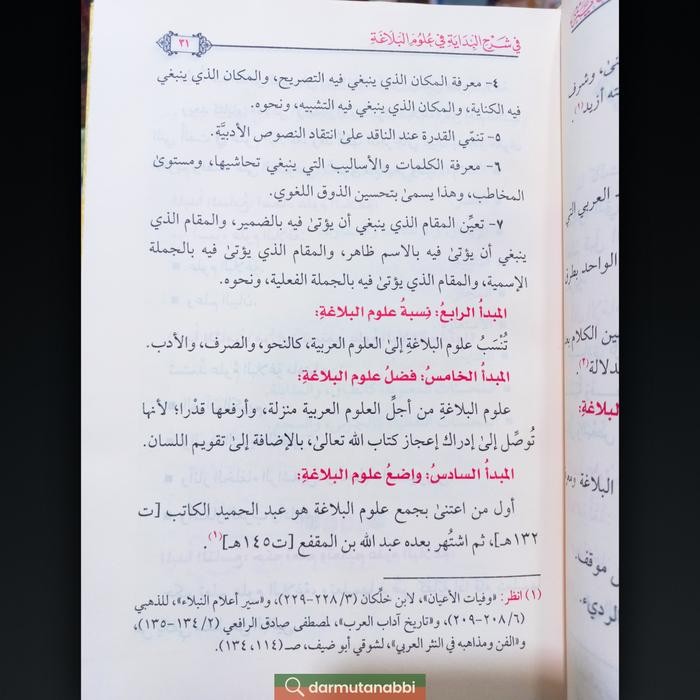 في شرح البداية في علوم البلاغة
٣١
٤- معرفة المكان الذي ينبغي فيه التصريح، والمكان الذي ينبغي
فيه الكناية، والمكان الذي ينبغي فيه التشبيه، ونحوه.
٥- تنمّي القدرة عند الناقد علىٰ انتقاد النصوص الأدبيَّة.
٦- معرفة الكلمات والأساليب التي ينبغي تحاشيها، ومستوىٰ
المخاطب، وهذا يسمىٰ بتحسين الذوق اللغوي.
٧- تعيِّن المقام الذي ينبغي أن يؤتىٰ فيه بالضمير، والمقام الذي
ينبغي أن يؤتىٰ فيه بالاسم ظاهر، والمقام الذي يؤتىٰ فيه بالجملة
الإسمية، والمقام الذي يؤتىٰ فيه بالجملة الفعلية، ونحوه.
المبدأ الرابعُ: نِسبةُ علوم البلاغةِ:
تُنْسَبُ علوم البلاغةِ إلىٰ العلوم العربية، كالنحو، والصرف، والأدب.
المبدأ الخامسُ: فضلُ علوم البلاغةِ:
علوم البلاغةِ من أجلِّ العلوم العربية منزلة، وأرفعها قدْرا؛ لأنها
تُوصِّل إلىٰ إدراك إعجاز كتاب الله تعالىٰ، بالإضافة إلىٰ تقويم اللسان.
المبدأ السادسُ: واضعُ علوم البلاغةِ:
أول من اعتنىٰ بجمع علوم البلاغة هو عبد الحميد الكاتب [ت
١٣٢هـ]، ثم اشتُهر بعده عبد الله بن المقفع [ت١٤٥هـ](١).
(١) انظر: «وفيات الأعيان»، لابن خلِّكان (٣/ ٢٢٨-٢٢٩)، و«سير أعلام النبلاء»، للذهبي
(٦/ ٢٠٨-٢٠٩)، و«تاريخ آداب العرب»، لمصطفى صادق الرافعي (٢/ ١٣٤-١٣٥)،
و«الفن ومذاهبه في النثر العربي»، لشوقي أبو ضيف، صـ (١١٤، ١٣٤).
darmutanabbi